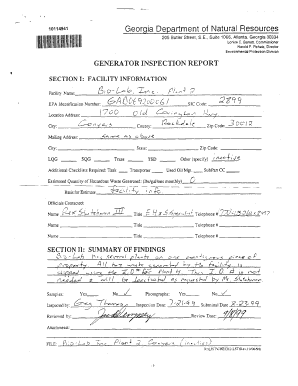 10114941
Georgia Department of Natural Resources
205 Butler Street, S.E., Suite 1066, Atlanta, Georgia 30334
Lonice C. Barrett, Commissioner
Harold F. Reheis, Director
Environmental Protection Division
GENERATOR INSPECTION REPORT
SECTION I: FACILITY INFORMATION
Facility Name: Bio-Lab, Inc. Plant 2
EPA Identification Number: SIC Code: 2899
Location Address: 1700 Old Covington Hwy
City: Conyers County: Rockdale Zip Code: 30012
Mailing Address: Same as above
City: State: Zip Code:
LQG SQG Trans. TSD Other (specify) inactive
Additional Checklists Required: Tank Transporter Used Oil Mgt. Subpart CC
Estimated Quantity of Hazardous Waste Generated: (kg/mo) 0
Basis for Estimate: facility info
Officials Contacted:
Name Title Telephone #
Name Title Telephone #
Name Title Telephone #
SECTION II: SUMMARY OF FINDINGS
Bio-Lab has several plants on one continuous piece of
property. All haz waste generated by the facility is
shipped using the ID# for Plant This ID# is not
needed & will be by Mr.
Samples: Yes No ✓ Photographs: Yes No ✓
Inspected by: Greg Inspection Date: 7-21-99 Submittal Date: 8-23-99
Reviewed by: Review Date: 9/8/99
Attachments:
FILE: Bio-Lab Inc Plant 2 Conyers (inactive)